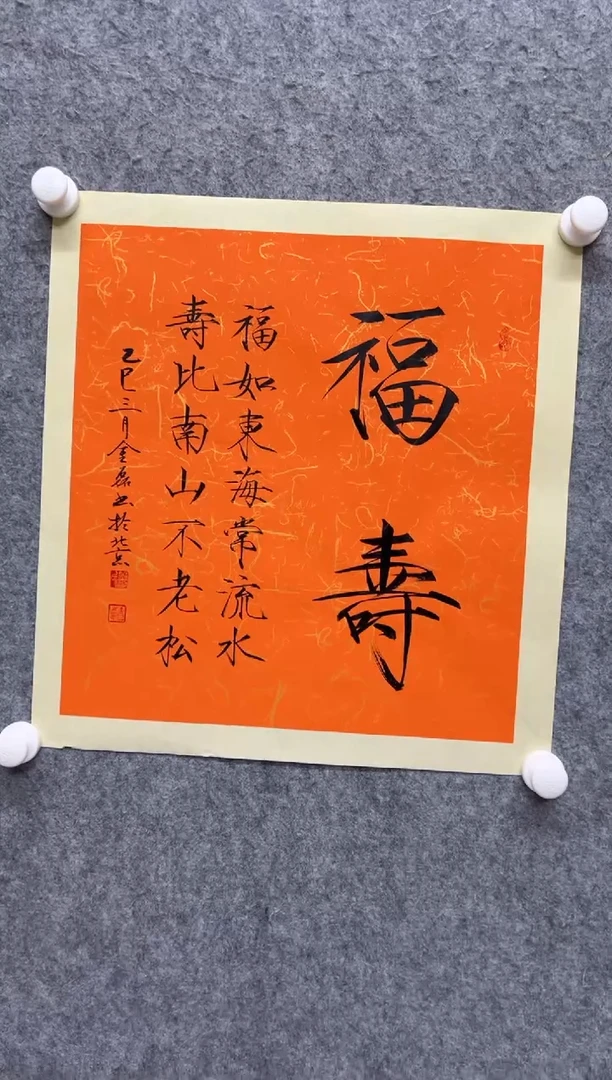 福壽
福如東海常流水
壽比南山不老松
乙巳三月金磊书於北京